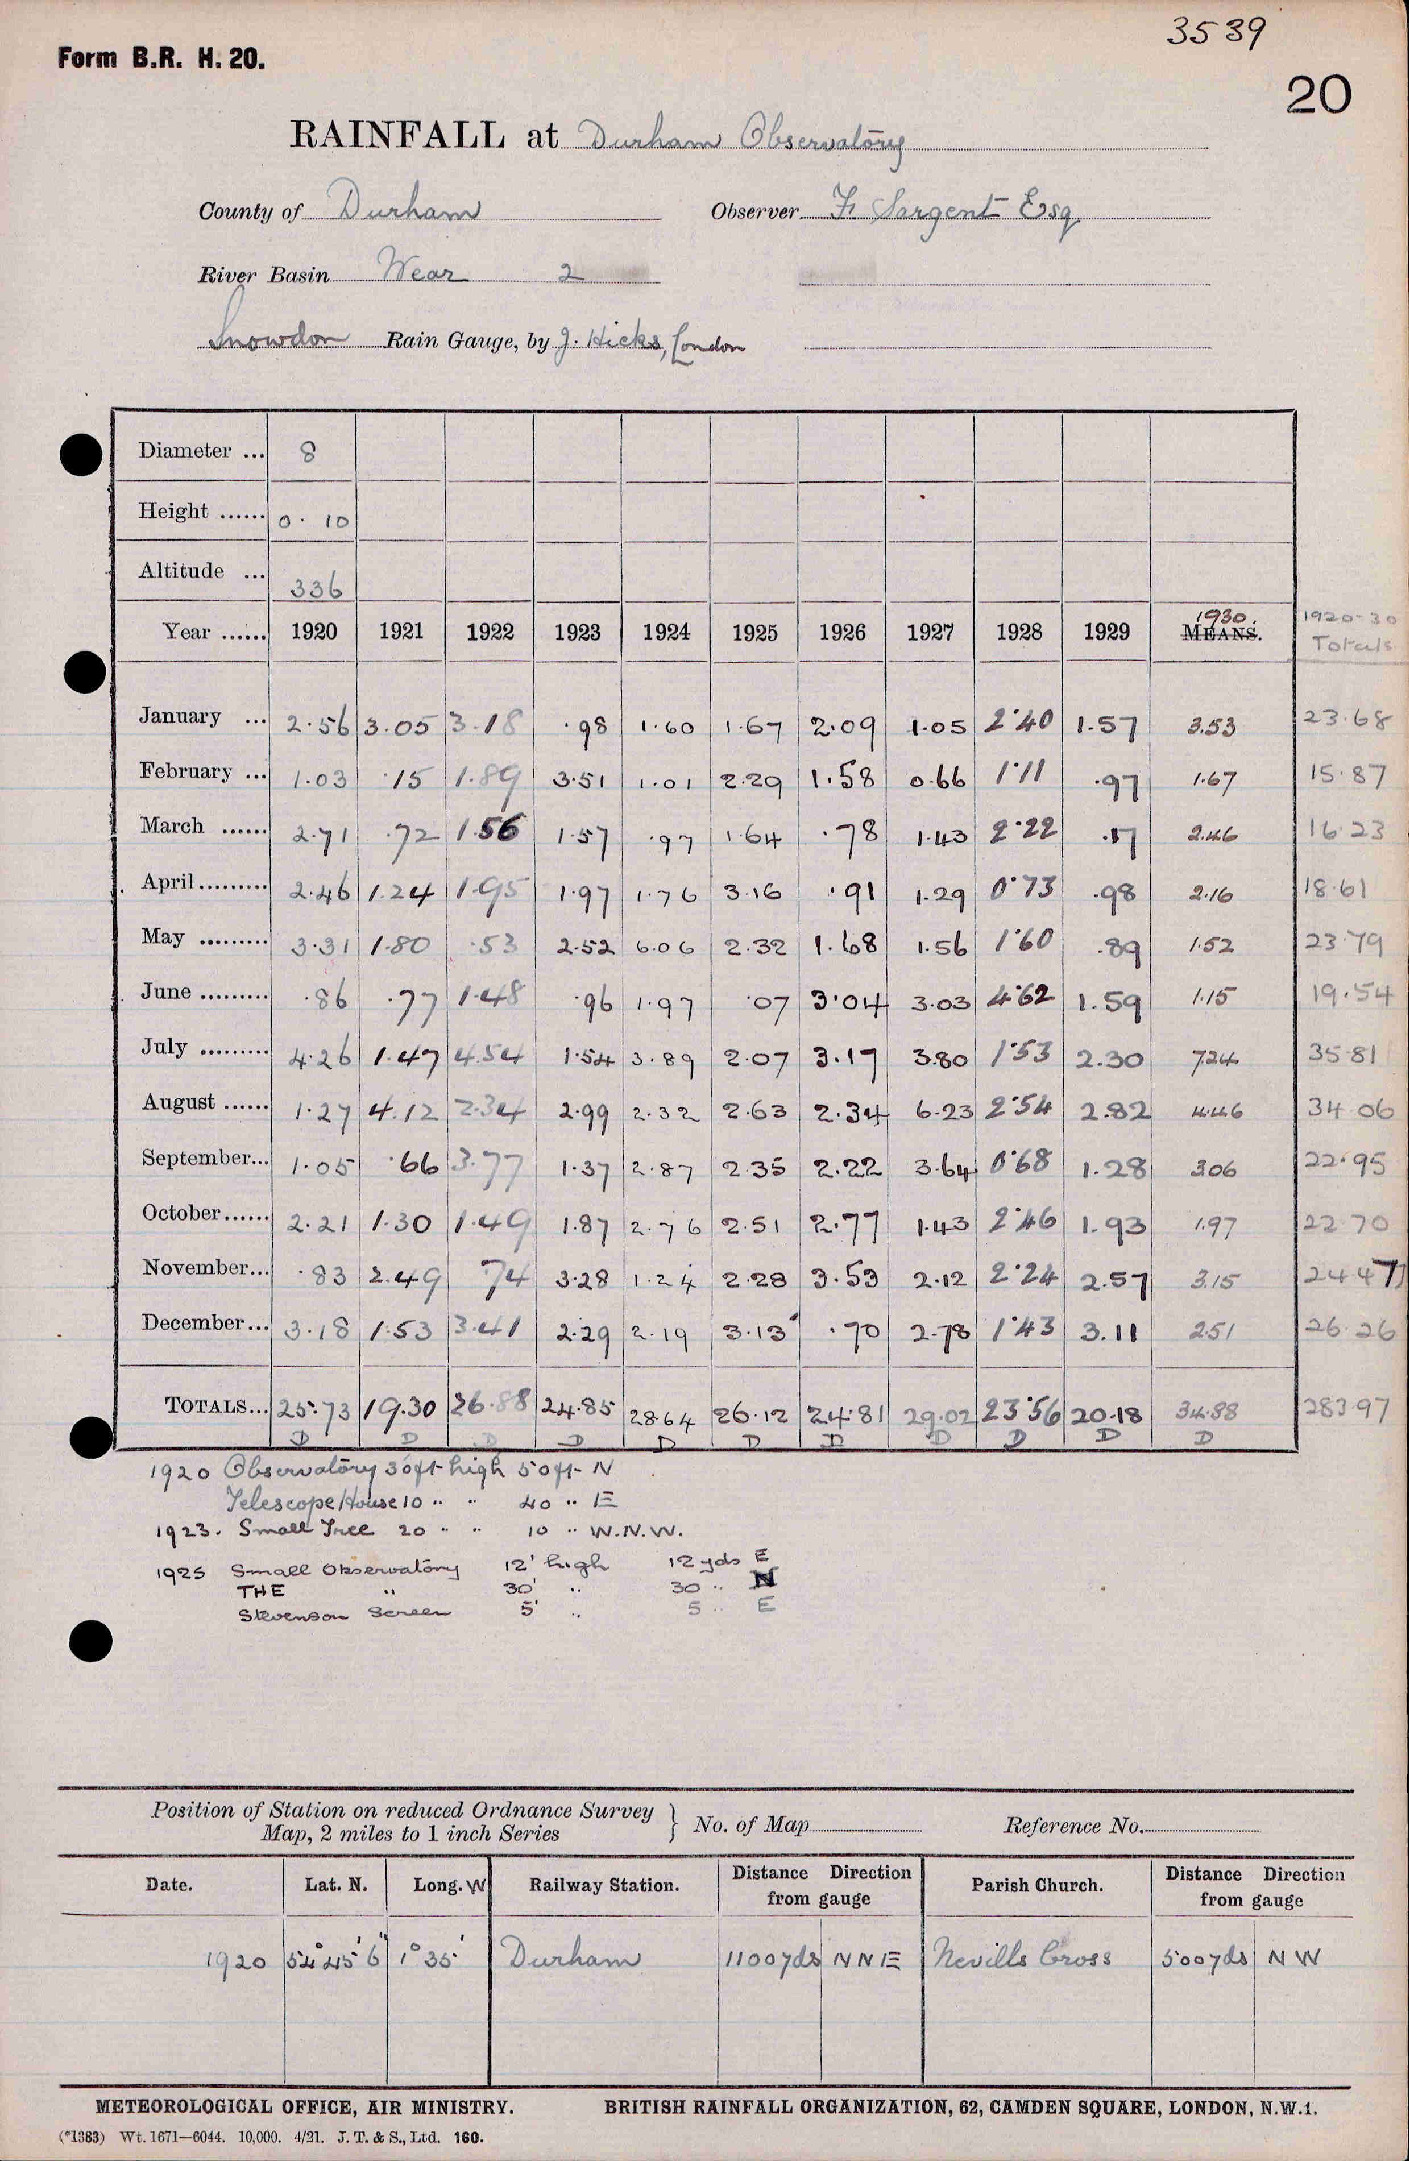 3539
Form B.R. H. 20.
20
RAINFALL at Durham Observatory
County of Durham Observer F. Sargent Esq
River Basin Wear 2
Snowdon Rain Gauge, by J. Hicks, London
Diameter ... 8
Height ...... 0. 10
Altitude ... 336
Year ...... 1920 1921 1922 1923 1924 1925 1926 1927 1928 1929 1930. MEANS. 1920-30 Totals
January ... 2.56 3.05 3.18 .98 1.60 1.67 2.09 1.05 2.40 1.57 3.53 23.68
February ... 1.03 .15 1.89 3.51 1.01 2.29 1.58 0.66 1.11 .97 1.67 15.87
March ...... 2.71 .72 1.56 1.57 .97 1.64 .78 1.43 2.22 .17 2.46 16.23
April ......... 2.46 1.24 1.95 1.97 1.76 3.16 .91 1.29 0.73 .98 2.16 18.61
May ......... 3.31 1.80 .53 2.52 6.06 2.32 1.68 1.56 1.60 .89 1.52 23.79
June ......... .86 .77 1.48 .96 1.97 .07 3.04 3.03 4.62 1.59 1.15 19.54
July ......... 4.26 1.47 4.54 1.54 3.89 2.07 3.17 3.80 1.53 2.30 7.24 35.81
August ...... 1.27 4.12 2.34 2.99 2.32 2.63 2.34 6.23 2.54 2.82 4.46 34.06
September... 1.05 .66 3.77 1.37 2.87 2.35 2.22 3.64 0.68 1.28 3.06 22.95
October ...... 2.21 1.30 1.49 1.87 2.76 2.51 2.77 1.43 2.46 1.93 1.97 22.70
November... .83 2.49 74 3.28 1.24 2.28 3.53 2.12 2.24 2.57 3.15 24.47
December... 3.18 1.53 3.41 2.29 2.19 3.13 .70 2.78 1.43 3.11 2.51 26.26
TOTALS... 25.73 19.30 26.88 24.85 28.64 26.12 24.81 29.02 23.56 20.18 34.88 283.97
D D D D D D D D D D D
1920 Observatory 30ft high 50ft N
Telescope House 10 " " 40 " E
1923. Small Tree 20 " " 10 " W.N.W.
1925 Small Observatory 12' high 12 yds E
THE " 30' " 30 " N
Stevenson Screen 5' " 5 " E
Position of Station on reduced Ordnance Survey
Map, 2 miles to 1 inch Series } No. of Map Reference No.
Date. Lat. N. Long. W Railway Station. Distance Direction from gauge Parish Church. Distance Direction from gauge
1920 54° 45' 6" 1° 35' Durham 1100 yds N N E Nevills Cross 500 yds N W
METEOROLOGICAL OFFICE, AIR MINISTRY. BRITISH RAINFALL ORGANIZATION, 62, CAMDEN SQUARE, LONDON, N.W.1.
(*1383) Wt. 1671—6044. 10,000. 4/21. J. T. & S., Ltd. 160.